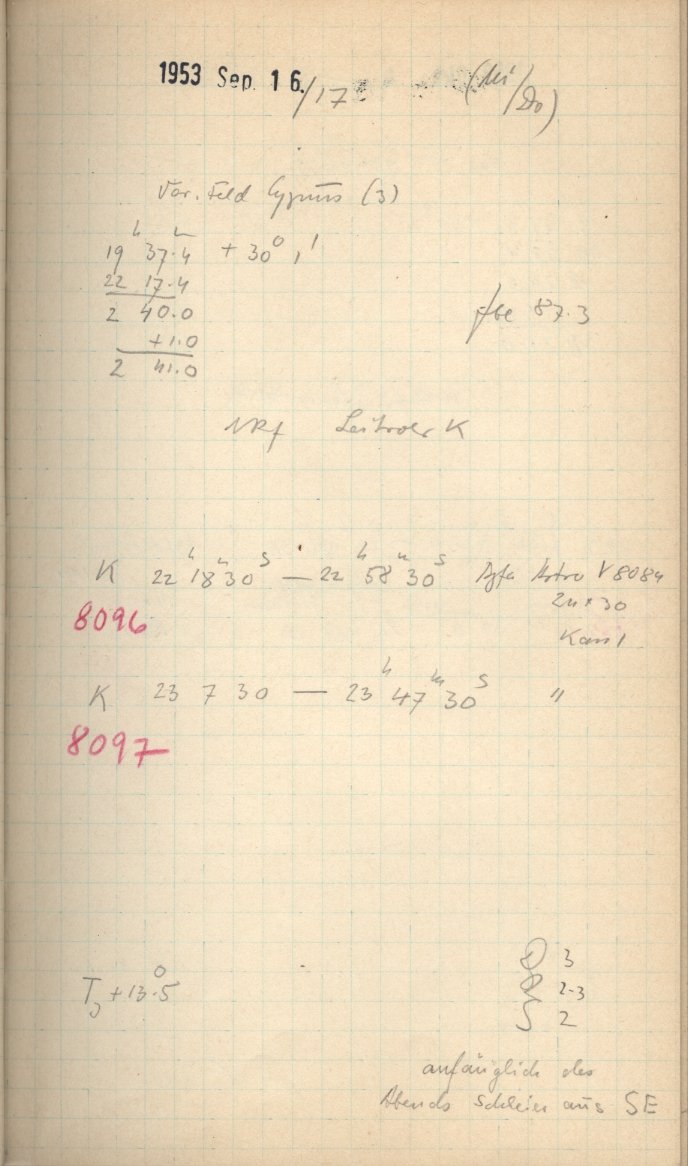 1953 Sep. 16./17 (Mi/Do)
Var. Feld Cygnus (3)
19h 37m.4 + 30° 1'
22 17.4
2 40.0
+1.0
2 41.0
fbe 87.3
Leitrohr K
K 22h 18m 30s — 22h 58m 30s Agfa Astro V8084
24 × 30
8096
Kass 1
K 23 7 30 — 23h 47m 30s "
8097
T, + 13°.5
3
2-3
S 2
anfänglich des
Abends Schleier aus SE